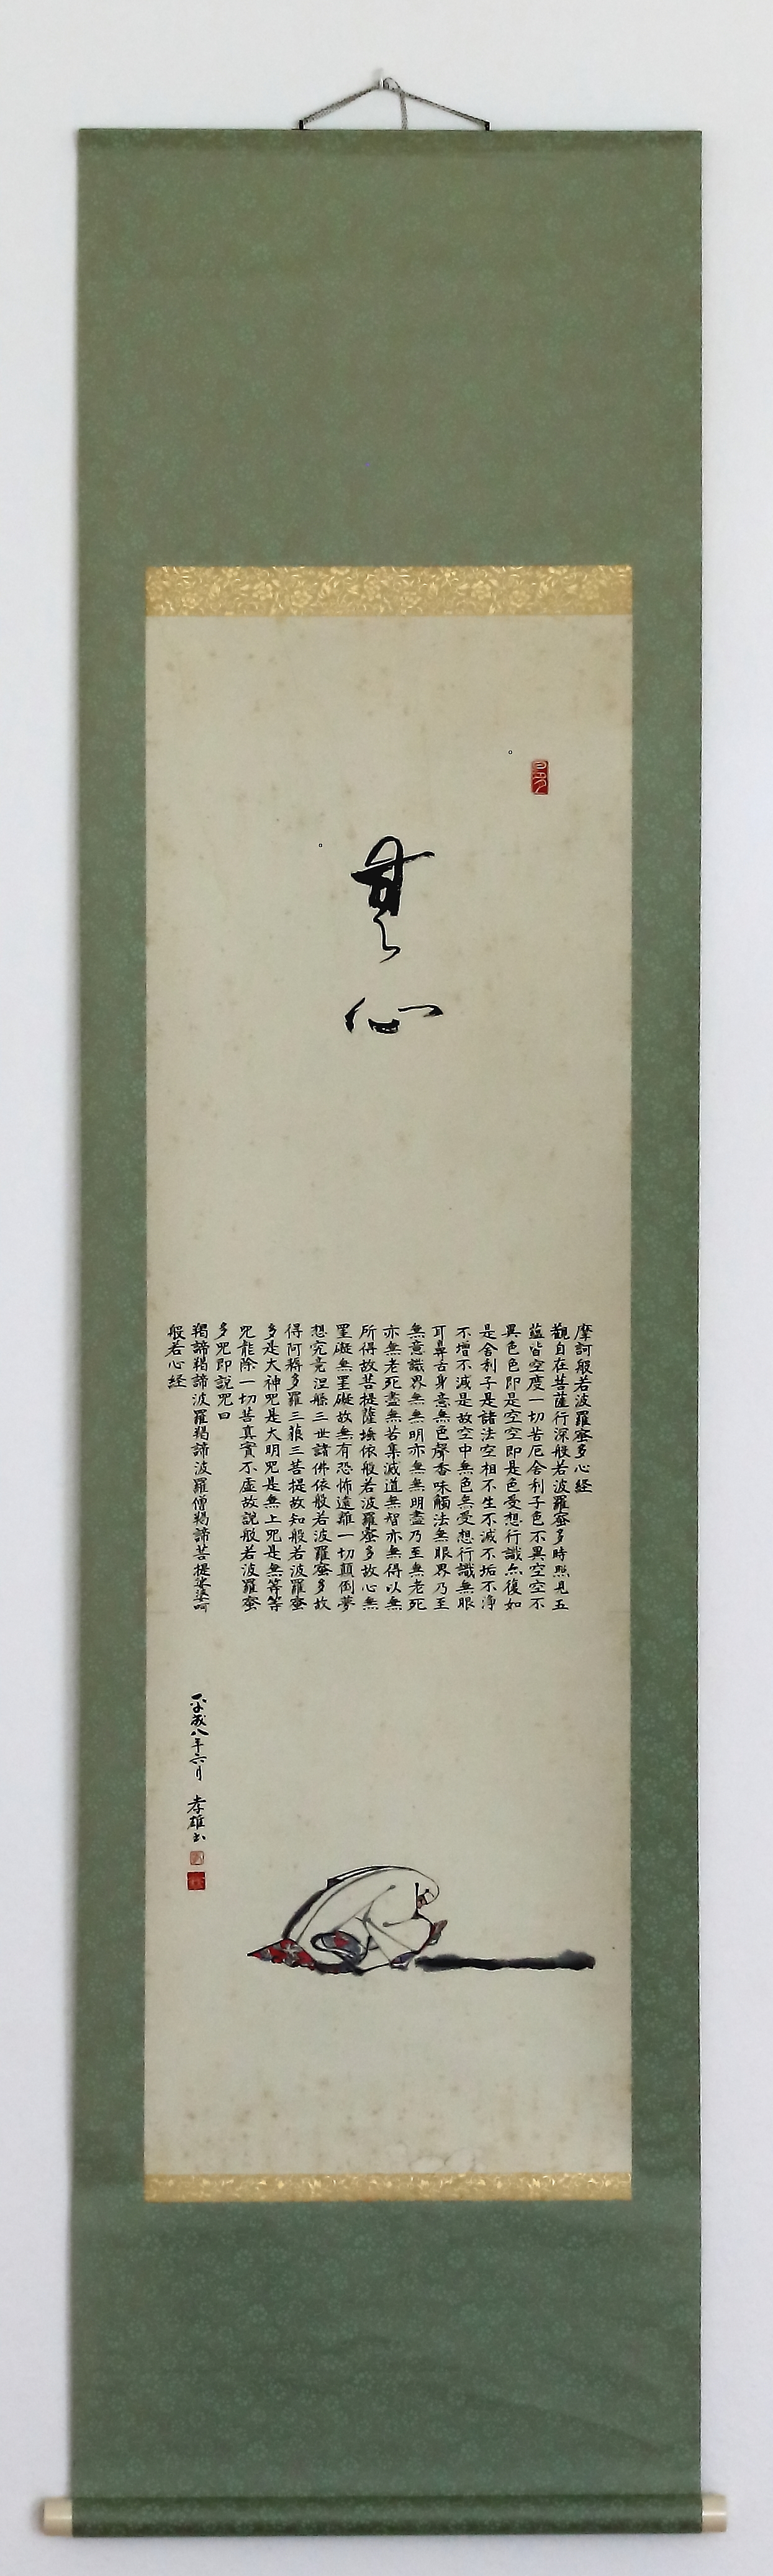 無
心
摩訶般若波羅蜜多心経
觀自在菩薩行深般若波羅蜜多時照見五
蘊皆空度一切苦厄舎利子色不異空空不
異色色即是空空即是色受想行識亦復如
是舎利子是諸法空相不生不滅不垢不浄
不増不減是故空中無色無受想行識無眼
耳鼻舌身意無色聲香味觸法無眼界乃至
無意識界無無明亦無無明盡乃至無老死
亦無老死盡無苦集滅道無智亦無得以無
所得故菩提薩埵依般若波羅蜜多故心無
罣礙無罣礙故無有恐怖遠離一切顛倒夢
想究竟涅槃三世諸佛依般若波羅蜜多故
得阿耨多羅三藐三菩提故知般若波羅蜜
多是大神咒是大明咒是無上咒是無等等
咒能除一切苦真實不虚故説般若波羅蜜
多咒即説咒曰
羯諦羯諦波羅羯諦波羅僧羯諦菩提娑婆呵
般若心経
平成八年六月 孝雄書